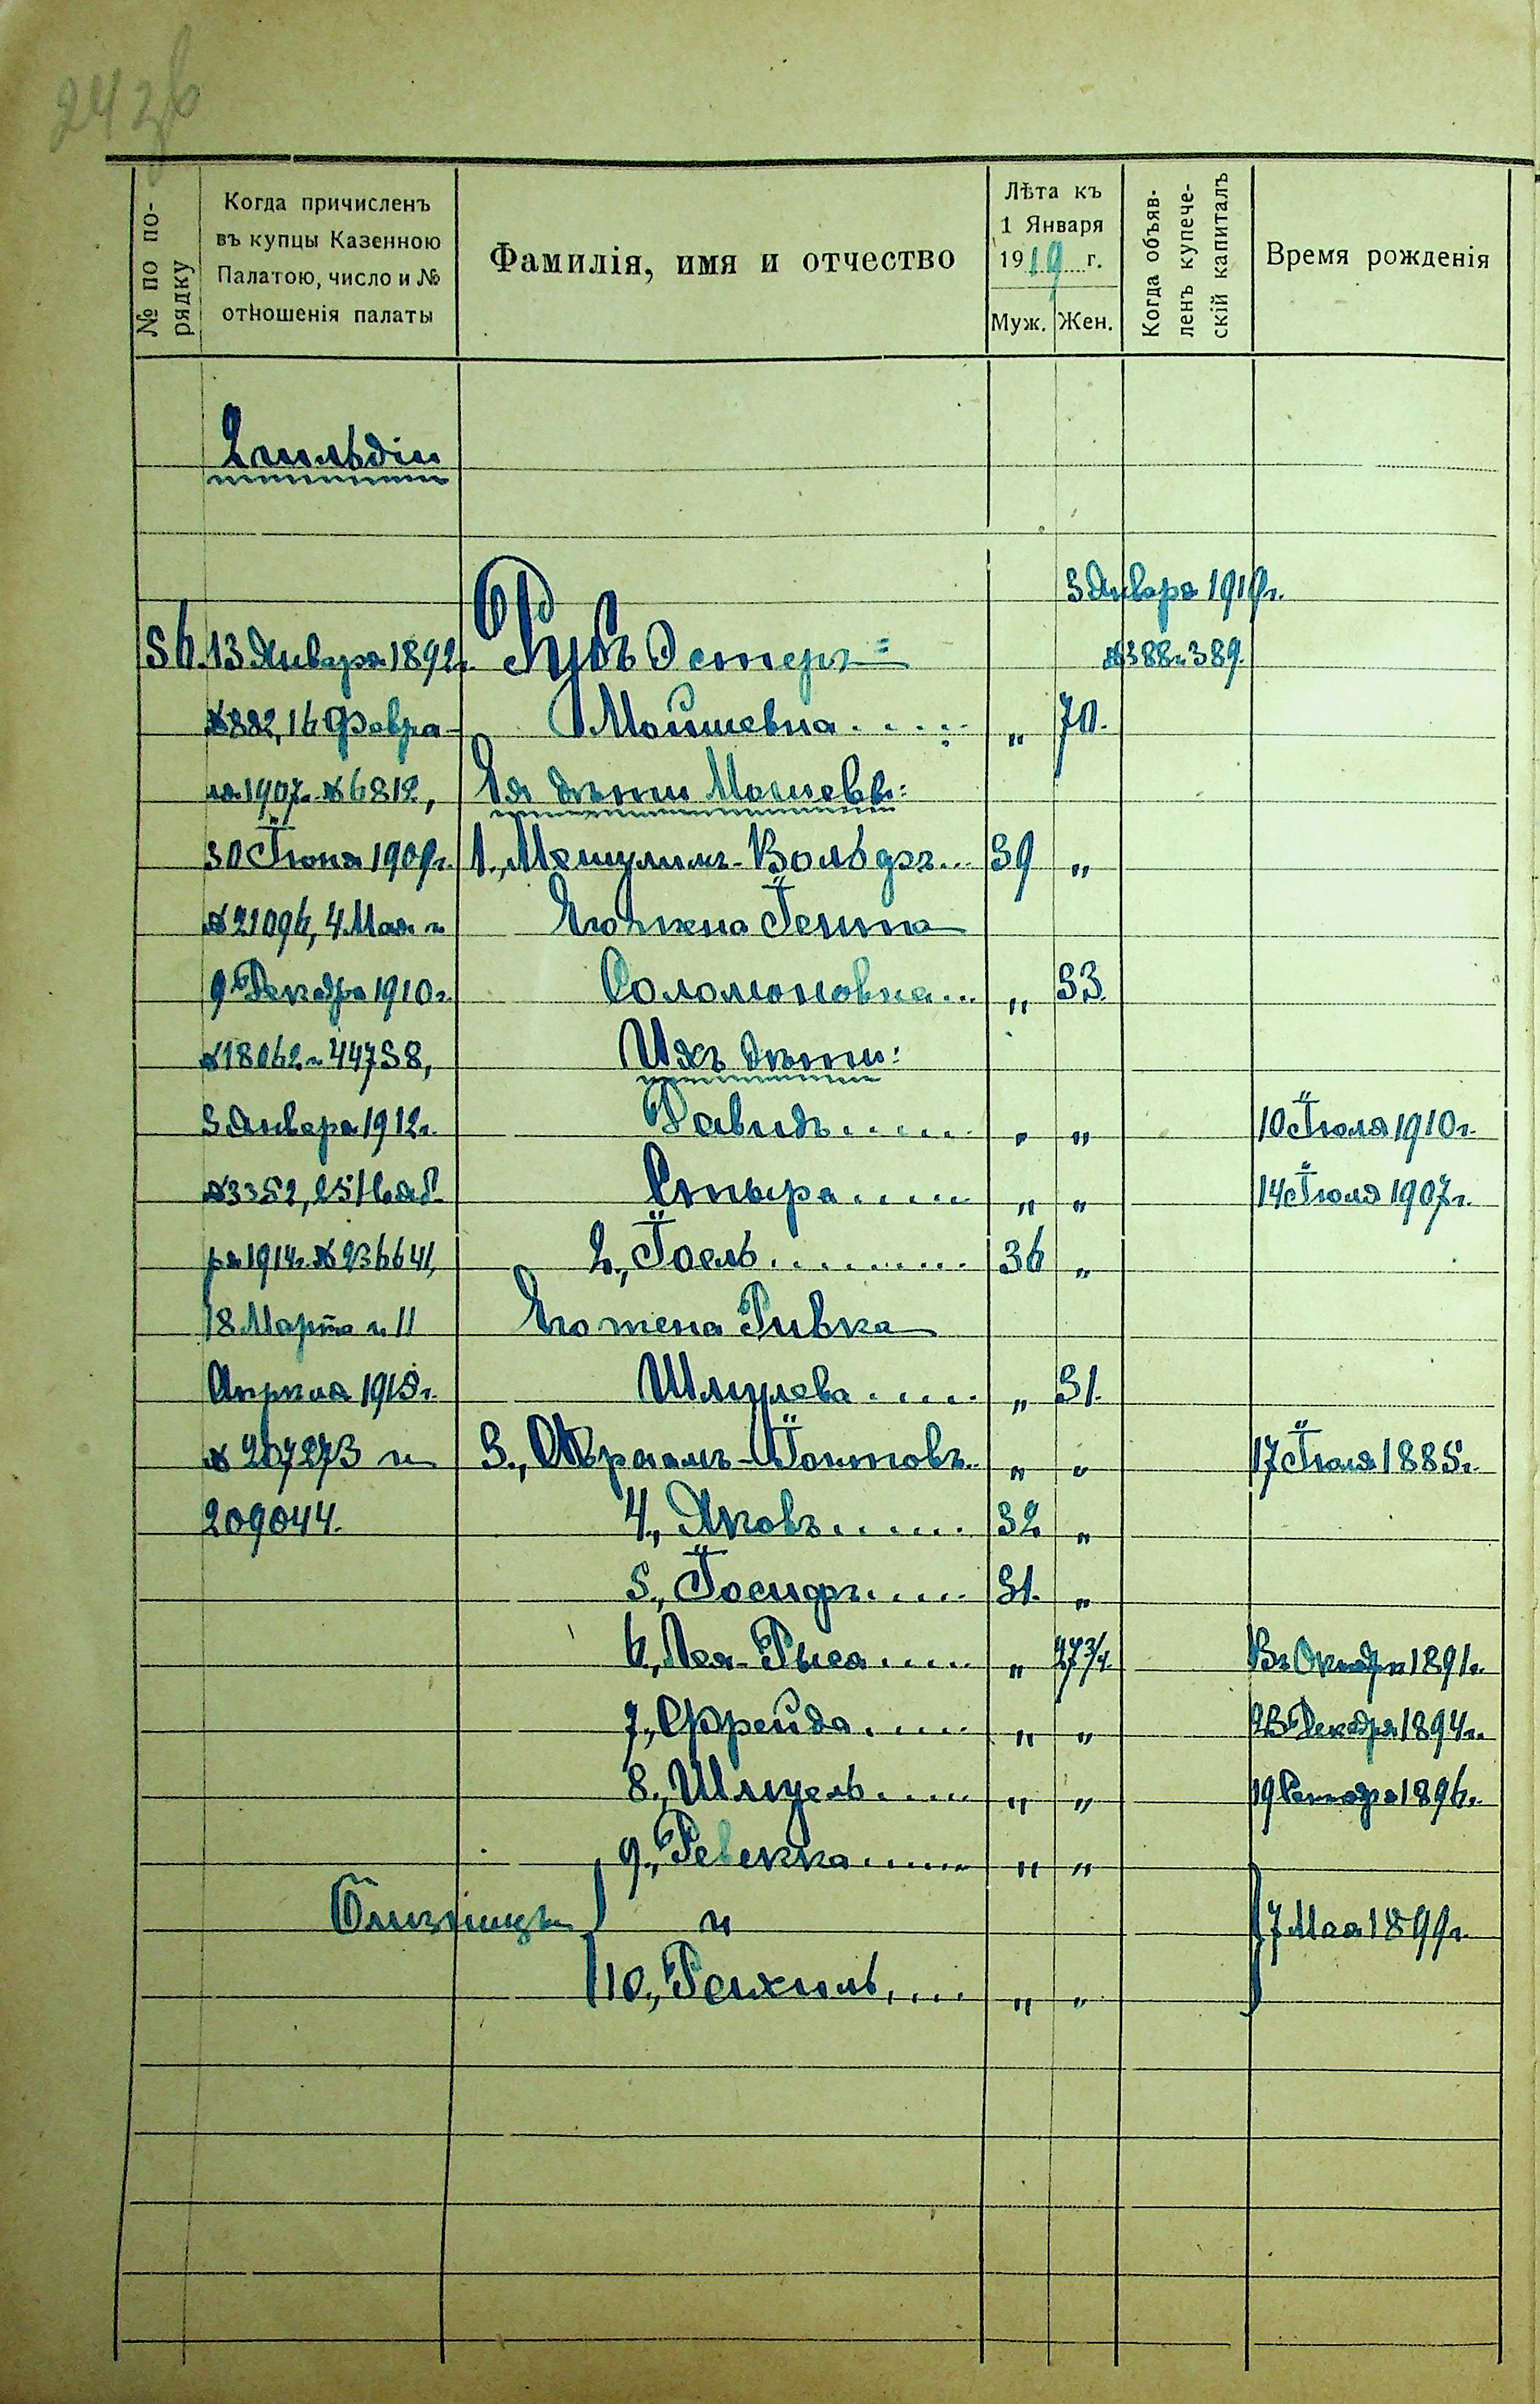 243б
№ по по-
рядку
Когда причисленъ
въ купцы Казенною
Палатою, число и №
отношенія палаты
Фамилія, имя и отчество
Лѣта къ
1 Января
1919 г.
Муж. Жен.
Когда объяв-
ленъ купече-
скій капиталъ
Время рожденія
2 гильдіи
3 Января 1919 г.
56. 13 Января 1892 г. Рубъ Эстеръ= №388 и 389.
№882, 16 Февра- Мойшевна..... „ 70.
ля 1907 г. №6812, Ея дѣти Мошевы:
30 Іюня 1909 г. 1., Мешулимъ-Вольфъ... 39 „
№21096, 4 Мая и Его жена
9 Декабря 1910 г. Соломоновна... „ 33.
№18062 и 44738, Ихъ дѣти:
3 Января 1912 г. Давидъ...... „ „ 10 Іюля 1910 г.
№3352, 25 Нояб- Стыра...... „ „ 14 Іюля 1907 г.
ря 1914 г. №236641, 2., Іоель.......... 36 „
18 Марта и 11 Его жена Ривка
Апрѣля 1915 г. Шмулева..... „ 31.
№207273 и 3., Абрамъ- „ „ 17 Іюля 1885 г.
209044. 4., Яковъ....... 32 „
5., Іосифъ..... 31. „
6., Лея-Рыса..... „ 27 3/4. Въ Октябрѣ 1891 г.
7., Фрейда..... „ „ 23 Декабря 1894 г.
8., Шмуель..... „ „ 19 Сентября 1896 г.
9., Ревекка...... „ „
Близнецы и 7 Мая 1899 г.
10., Рейхиль.... „ „